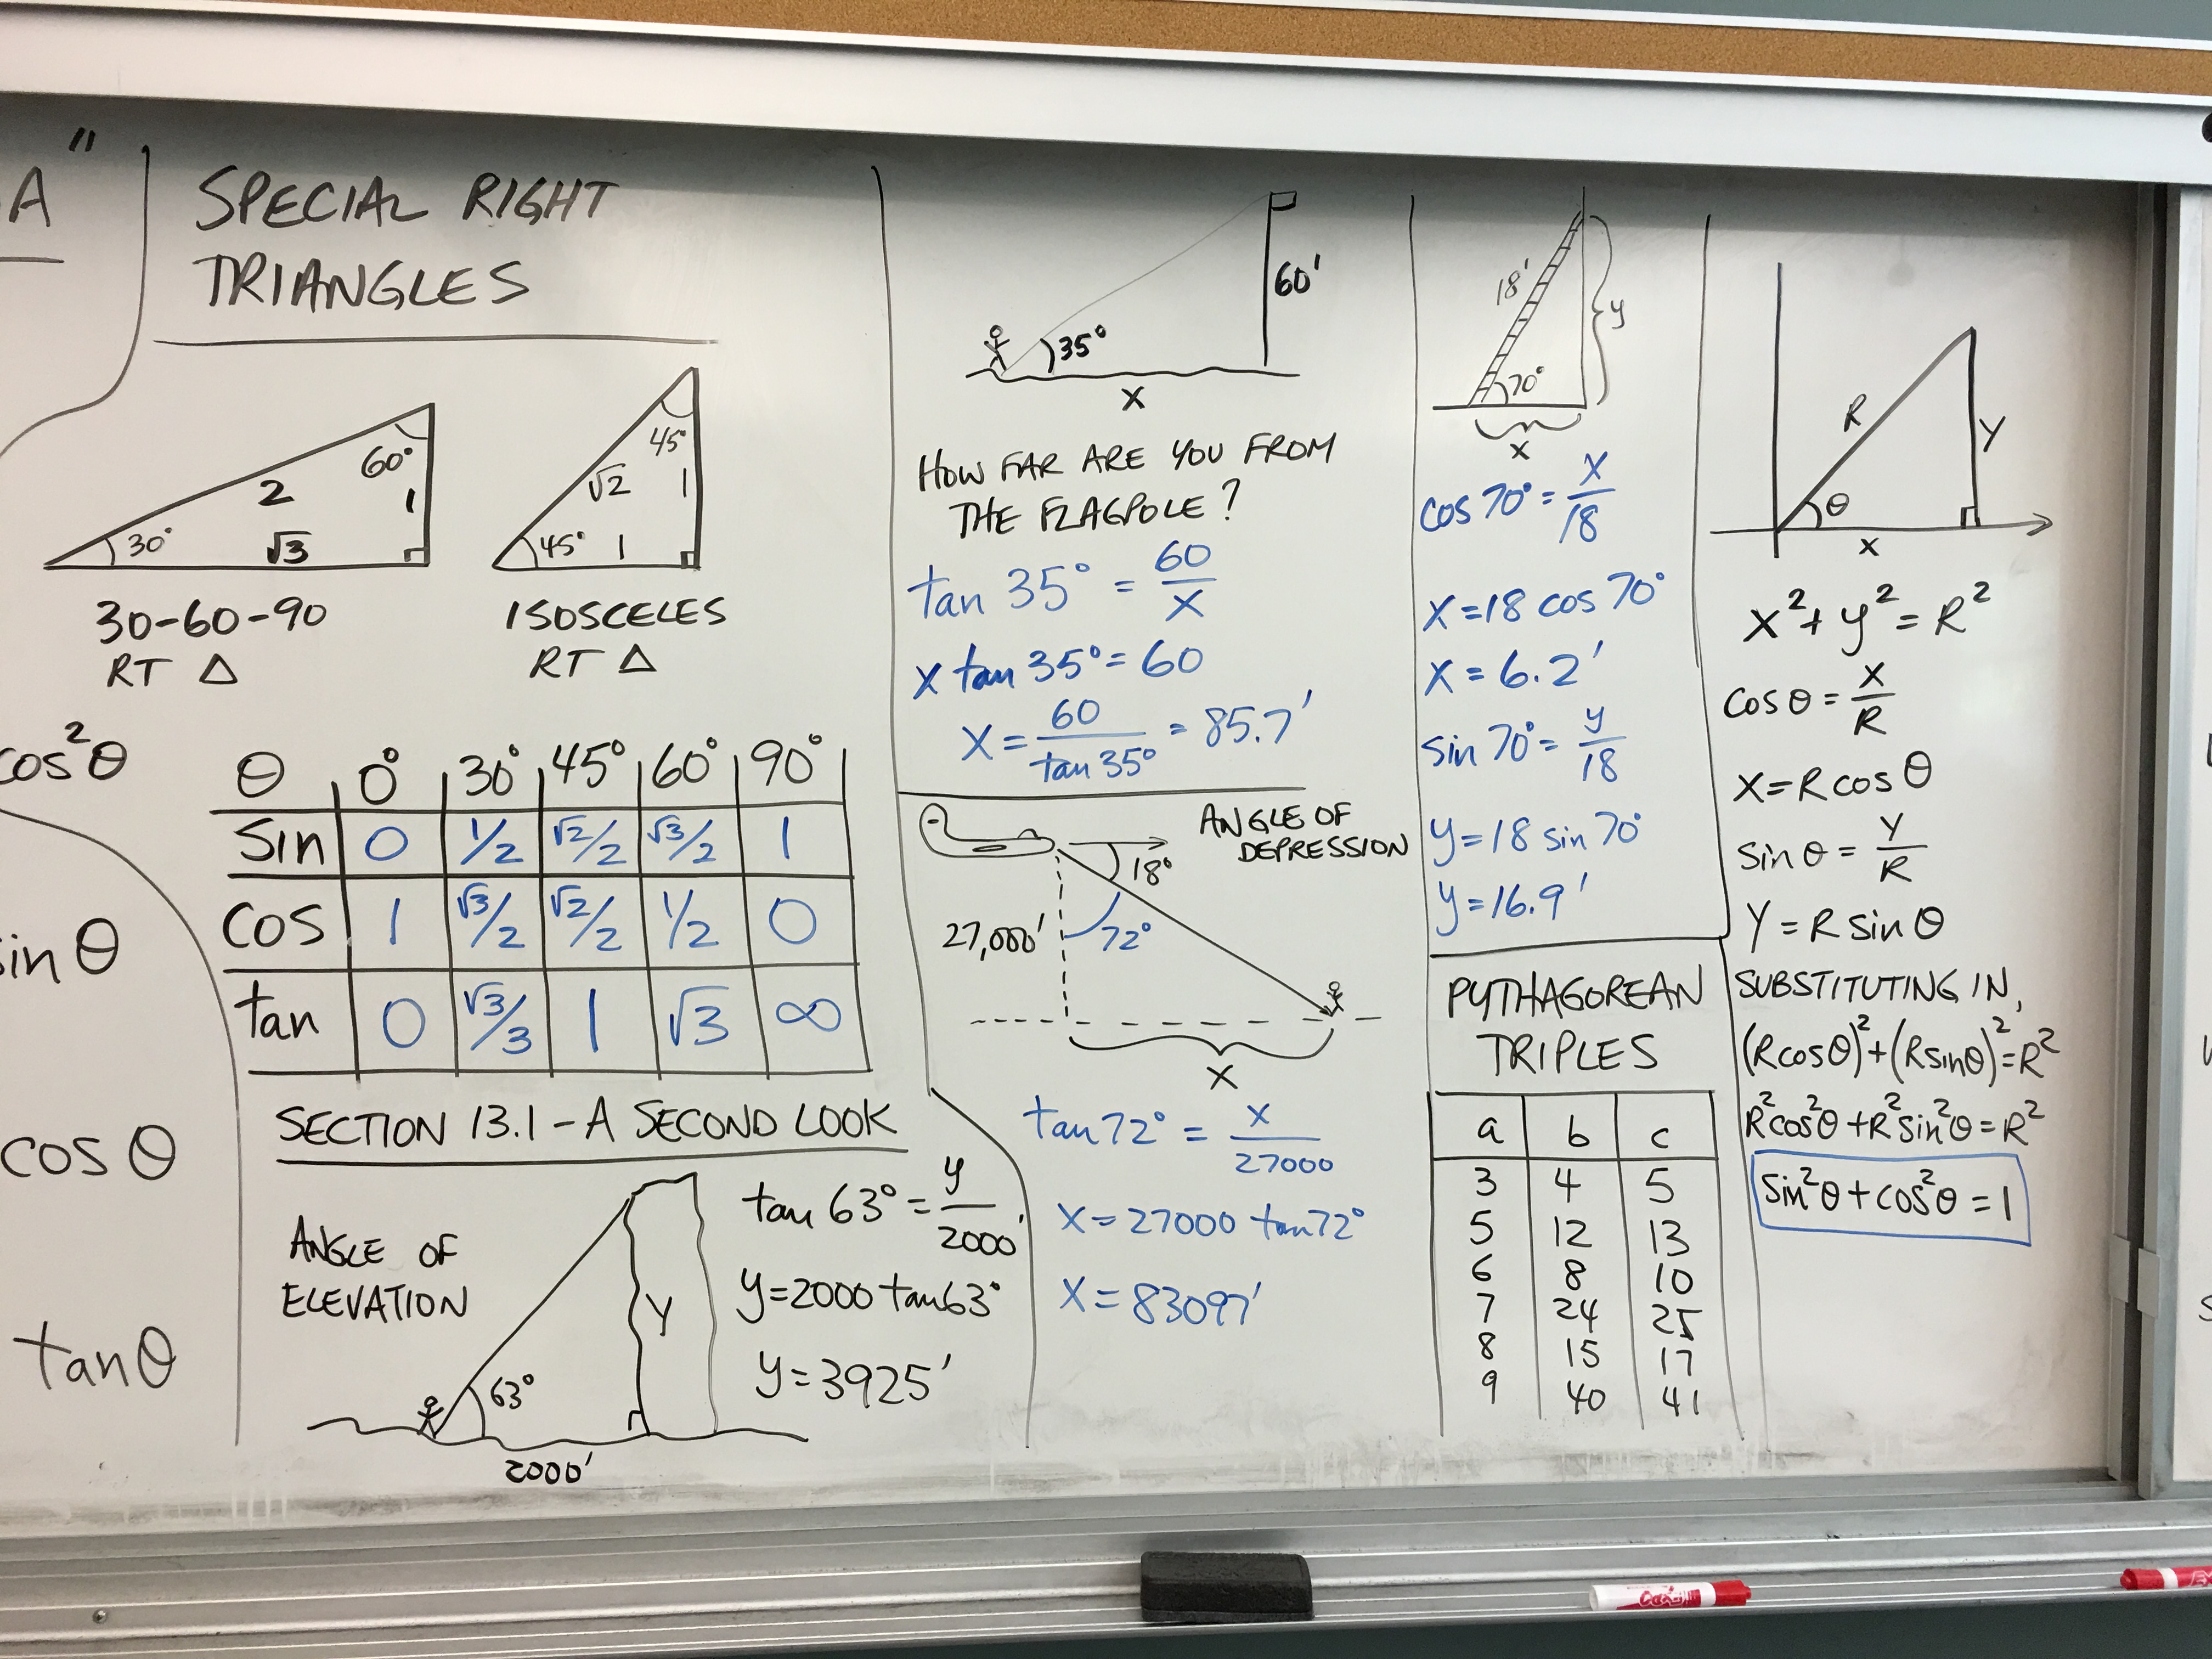 A"
cos²θ
sin θ
cos θ
tan θ
SPECIAL RIGHT
TRIANGLES
60°
2
1
30°
√3
30-60-90
RT △
45°
√2
1
45°
1
ISOSCELES
RT △
θ 0° 30° 45° 60° 90°
sin 0 1/2 √2/2 √3/2 1
cos 1 √3/2 √2/2 1/2 0
tan 0 √3/3 1 √3 ∞
SECTION 13.1 - A SECOND LOOK
ANGLE OF
ELEVATION
63°
Y
2000'
tan 63° = y/2000'
y=2000 tan63°
y=3925'
60'
35°
X
HOW FAR ARE YOU FROM
THE FLAGPOLE?
tan 35° = 60/X
x tan 35° = 60
X = 60/tan 35° = 85.7'
ANGLE OF
DEPRESSION
18°
27,000'
72°
X
tan 72° = x/27000
X = 27000 tan72°
X = 83097'
18'
y
70°
X
cos 70° = X/18
X=18 cos 70°
X = 6.2'
sin 70° = y/18
y=18 sin 70°
y=16.9'
PYTHAGOREAN
TRIPLES
a b c
3 4 5
5 12 13
6 8 10
7 24 25
8 15 17
9 40 41
R
Y
θ
X
X² + y² = R²
cos θ = X/R
X=R cos θ
sin θ = Y/R
Y = R sin θ
SUBSTITUTING IN,
(R cos θ)² + (R sin θ)² = R²
R²cos²θ + R²sin²θ = R²
sin²θ + cos²θ = 1